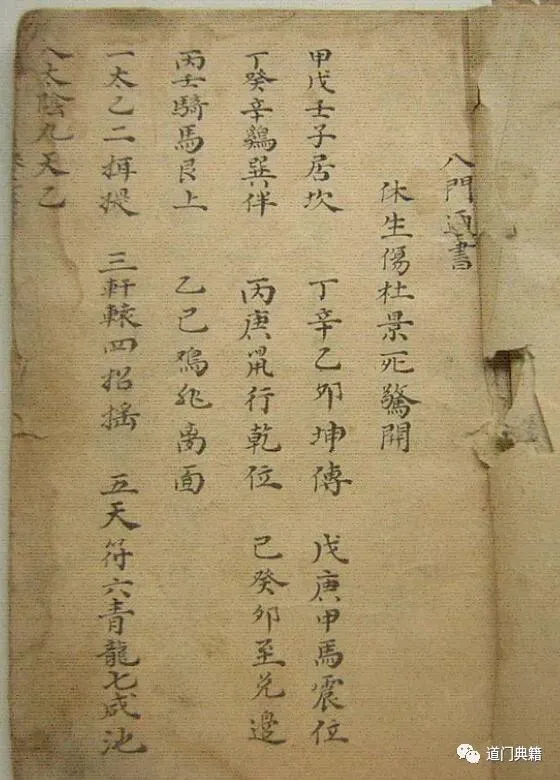 八門遁書
休生傷杜景死驚開
甲戊壬子居坎 丁辛乙卯坤傳 戊庚甲馬震位
丁癸辛鷄巽伴 丙庚鼠行乾位 己癸卯至兌邊
丙壬騎馬艮上 乙己鸡飛离面
一太乙二摂提 三軒轅四招摇 五天符六青龍七咸池
八太陰九天乙
道门典籍